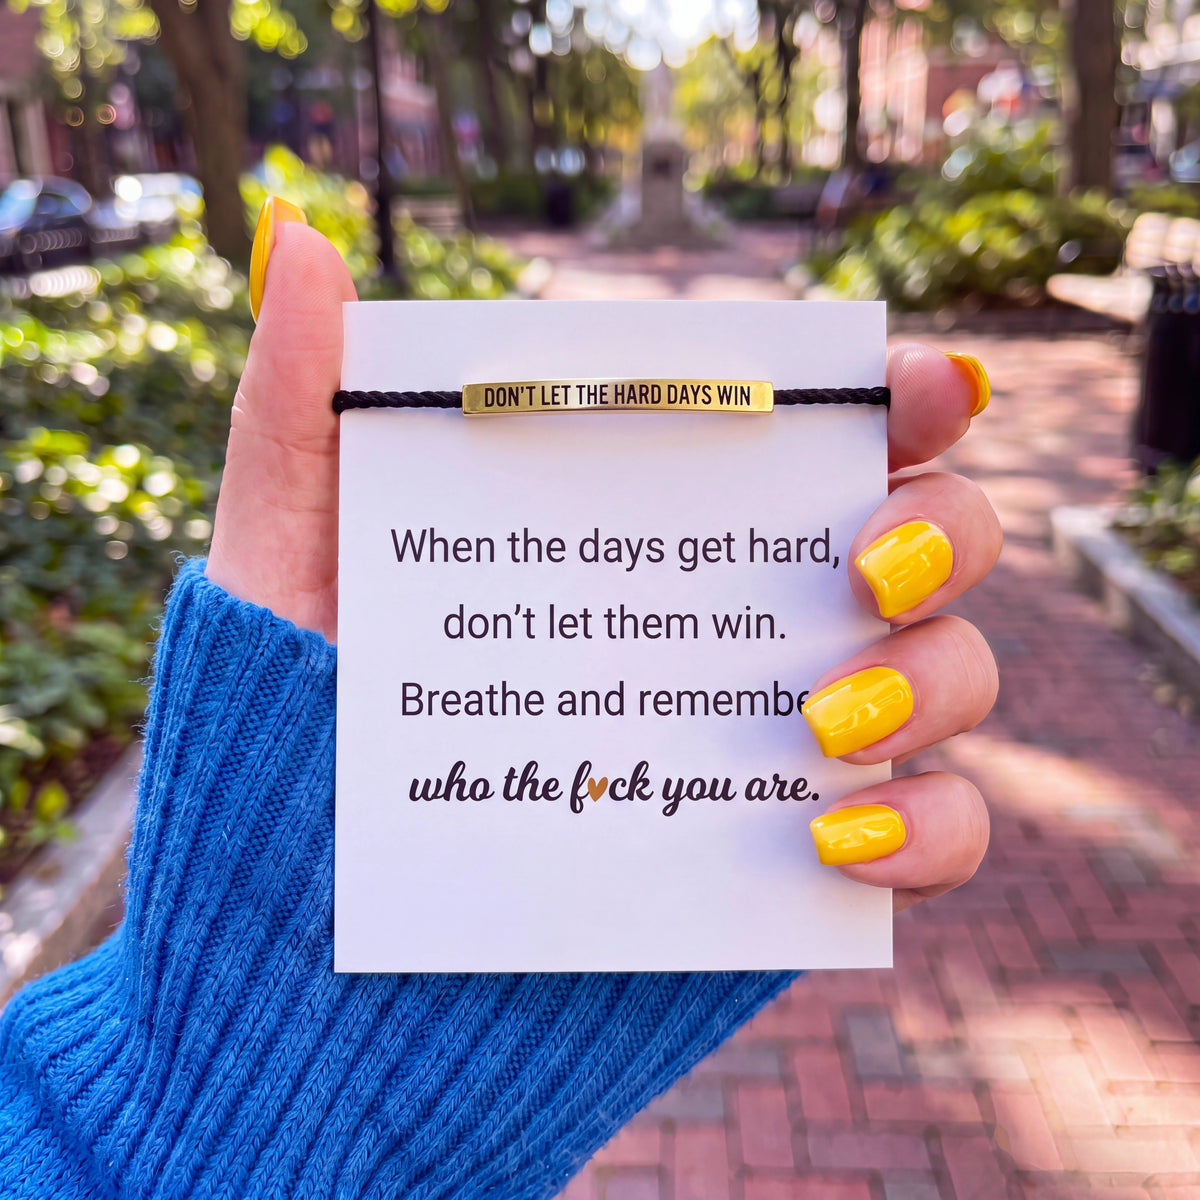 DON'T LET THE HARD DAYS WIN
When the days get hard,
don’t let them win.
Breathe and remembe
who the f♥ck you are.